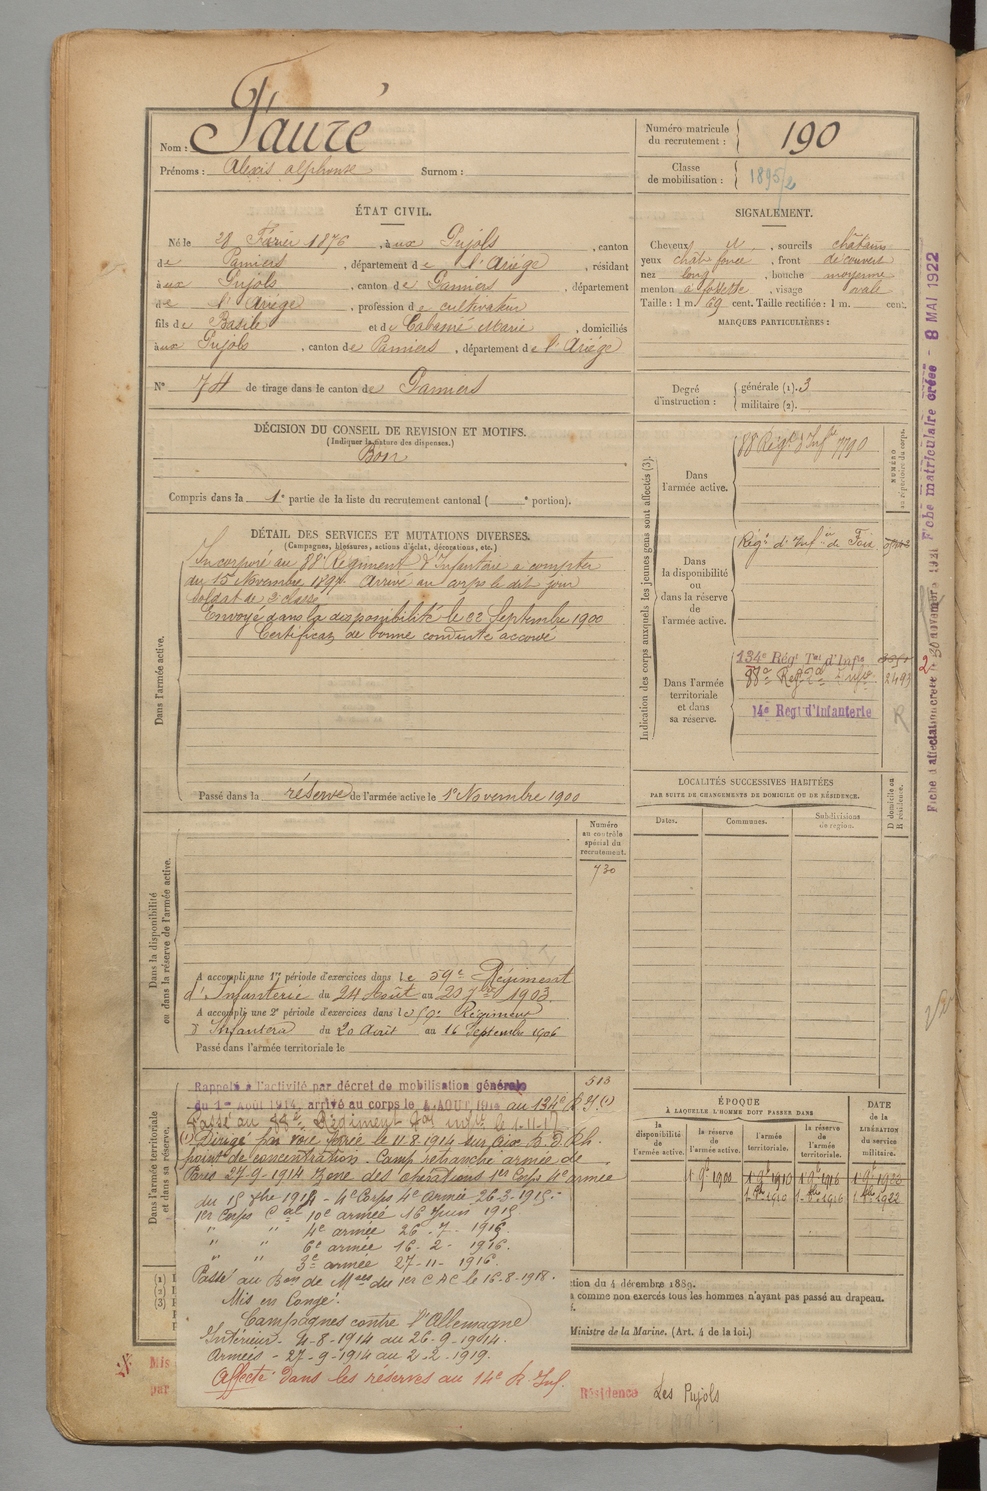 Nom : Fauré
Prénoms : Alexis alphonse Surnom :
Numéro matricule du recrutement : 190
Classe de mobilisation : 1895/2
ÉTAT CIVIL.
Né le 28 Février 1876, à ux Pujols, canton
de Pamiers, département de l'Ariège, résidant
à ux Pujols, canton de Pamiers, département
de l'Ariège, profession de cultivateur
fils de Basile et de Cabanné Marie, domiciliés
à ux Pujols, canton de Pamiers, département de l'Ariége
N° 74 de tirage dans le canton de Pamiers
SIGNALEMENT.
Cheveux et, sourcils châtains
yeux chat foncé, front découvert
nez long, bouche moyenne
menton à fossette, visage ovale
Taille : 1 m. 69 cent. Taille rectifiée : 1 m. cent.
MARQUES PARTICULIÈRES :
Degré d'instruction : générale (1). 3
militaire (2).
DÉCISION DU CONSEIL DE REVISION ET MOTIFS.
(Indiquer la nature des dispenses.)
Bon
Compris dans la 1e partie de la liste du recrutement cantonal ( e portion).
DÉTAIL DES SERVICES ET MUTATIONS DIVERSES.
(Campagnes, blessures, actions d'éclat, décorations, etc.)
Dans l'armée active.
Incorporé au 88e Régiment d'Infanterie a compter
du 15 Novembre 1897. Arrivé au corps le dit jour
Soldat de 2e classe
Envoyé dans la disponibilité le 22 Septembre 1900
Certificat de bonne conduite accordé
Passé dans la réserve de l'armée active le 1er Novembre 1900
Indication des corps auxquels les jeunes gens sont affectés (3).
NUMÉRO au répertoire du corps.
Dans l'armée active.
88 Régt d'Infie 7790
Dans la disponibilité ou dans la réserve de l'armée active.
Régt d'Infie de Foix
Dans l'armée territoriale et dans sa réserve.
134e Régt Tal d'Infie
88e Regt d'Infie 2493
14e Regt d'Infanterie R
LOCALITÉS SUCCESSIVES HABITÉES
PAR SUITE DE CHANGEMENTS DE DOMICILE OU DE RÉSIDENCE.
Dates. Communes. Subdivisions de région. D domicile ou R résidence.
Dans la disponibilité ou dans la réserve de l'armée active.
Numéro au contrôle spécial du recrutement.
730
A accompli une 1re période d'exercices dans le 59e Régiment
d'Infanterie du 24 Août au 20 7bre 1903.
A accompli une 2e période d'exercices dans le 59e Régiment
d'Infanterie du 20 Août au 16 Septembre 1906
Passé dans l'armée territoriale le
Dans l'armée territoriale et dans sa réserve.
513
Rappelé à l'activité par décret de mobilisation générale
du 1er Août 1914, arrivé au corps le 4 AOUT 1914 au 134e R I (1)
Passé au 88e Régiment Tal inf. le 1-11-14
(1) Dirigé par voie ferrée le 11.8.1914 sur Aix B. D. Rh.
point de concentration. Camp retranché armée de
Paris 27-9-1914 Zone des opérations 1er Corps 4e armée
du 15 7bre 1914 - 4e Corps 4e armée 26-3-1915.-
1er Corps Cal 10e armée 16 Juin 1915
" " 4e armée 26-7-1915.
" " 6e armée 16-2-1916.
" " 3e armée 27-11-1916.
Passé au Bon de Mses du 1er C A C le 16-8-1918.
Mis en Congé.
Campagnes contre l'Allemagne
Intérieur - 4-8-1914 au 26-9-1914.
Armées - 27-9-1914 au 2-2-1919.
Affecté dans les réserves au 14e R. Inf.
ÉPOQUE
À LAQUELLE L'HOMME DOIT PASSER DANS
la disponibilité de l'armée active.
la réserve de l'armée active.
l'armée territoriale.
la réserve de l'armée territoriale.
DATE de la LIBÉRATION du service militaire.
1 9e 1900 1 9e 1910 1 9e 1916 1 9e 1922
1 8bre 1910 1 8bre 1916 1 8bre 1922
(1)
(2)
(3)
tion du 4 décembre 1889.
a comme non exercés tous les hommes n'ayant pas passé au drapeau.
Ministre de la Marine. (Art. 4 de la loi.)
Mis
par
Résidence Les Pujols
Fiche d'affectation créée le 30 novembre 1921 Fiche matriculaire créée - 8 MAI 1922